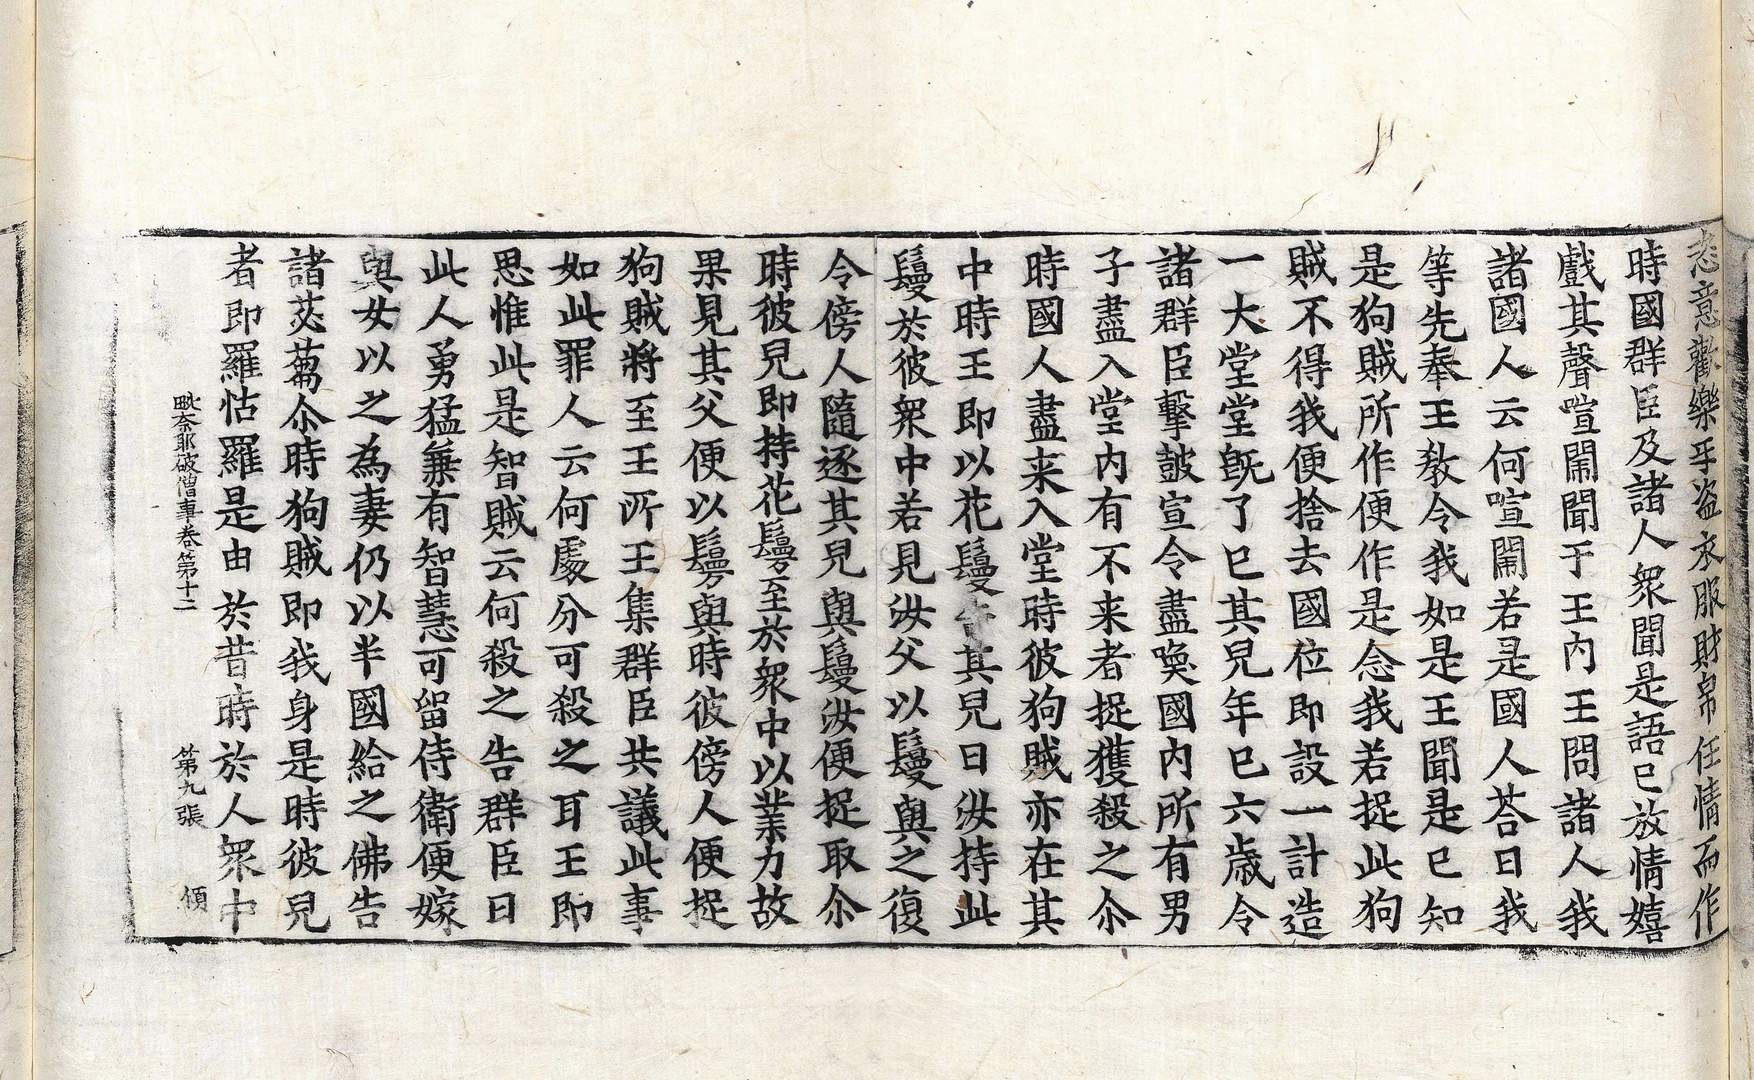 恣意歡樂乎盜衣服財帛任情而作
時國群臣及諸人衆聞是語已放情嬉
戲其聲喧閙聞于王內王問諸人我
諸國人云何喧閙若是國人荅曰我
等先奉王教令我如是王聞是已知
是狗賊所作便作是念我若捉此狗
賊不得我便捨去國位即設一計造
一大堂堂旣了已其兒年已六歲令
諸群臣擊皷宣令盡喚國內所有男
子盡入堂內有不来者捉獲殺之尒
時國人盡来入堂時彼狗賊亦在其
中時王即以花鬘告其兒曰汝持此
鬘於彼衆中若見汝父以鬘與之復
令傍人隨逐其兒與鬘汝便捉取尒
時彼兒即持花鬘至於衆中以業力故
果見其父便以鬘與時彼傍人便捉
狗賊將至王所王集群臣共議此事
如此罪人云何處分可殺之耳王即
思惟此是智賊云何殺之告群臣曰
此人勇猛兼有智慧可留侍衛便嫁
與女以之為妻仍以半國給之佛告
諸苾蒭尒時狗賊即我身是時彼兒
者即羅怙羅是由於昔時於人衆中
毗奈耶破僧事卷第十二 第九張 傾